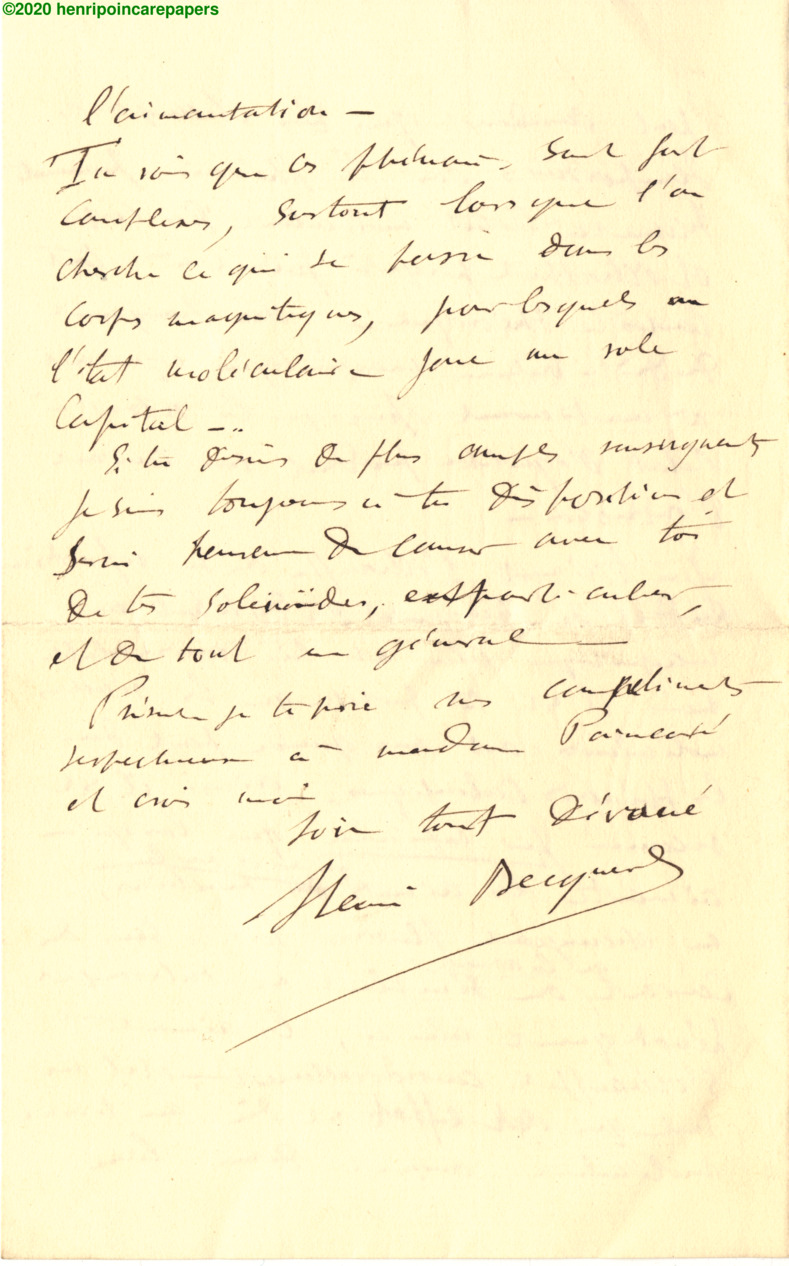 ©2020 henripoincarepapers
l'aimantation —
Tu sais que ces phénomè. sont fort
complexes, surtout lorsque l'on
cherche ce qui se passe dans les
corps magnétiques, pour lesquels
l'état moléculaire joue un role
capital —..
Si tu désires de plus amples renseignements
je suis toujours à ta disposition et
serai heureux de causer avec toi
de tes solénoïdes, en particulier,
et de tout en général —
Présente je te prie mes compliments
respectueux à madame Poincaré
et crois moi
ton tout dévoué
Henri Becquerel